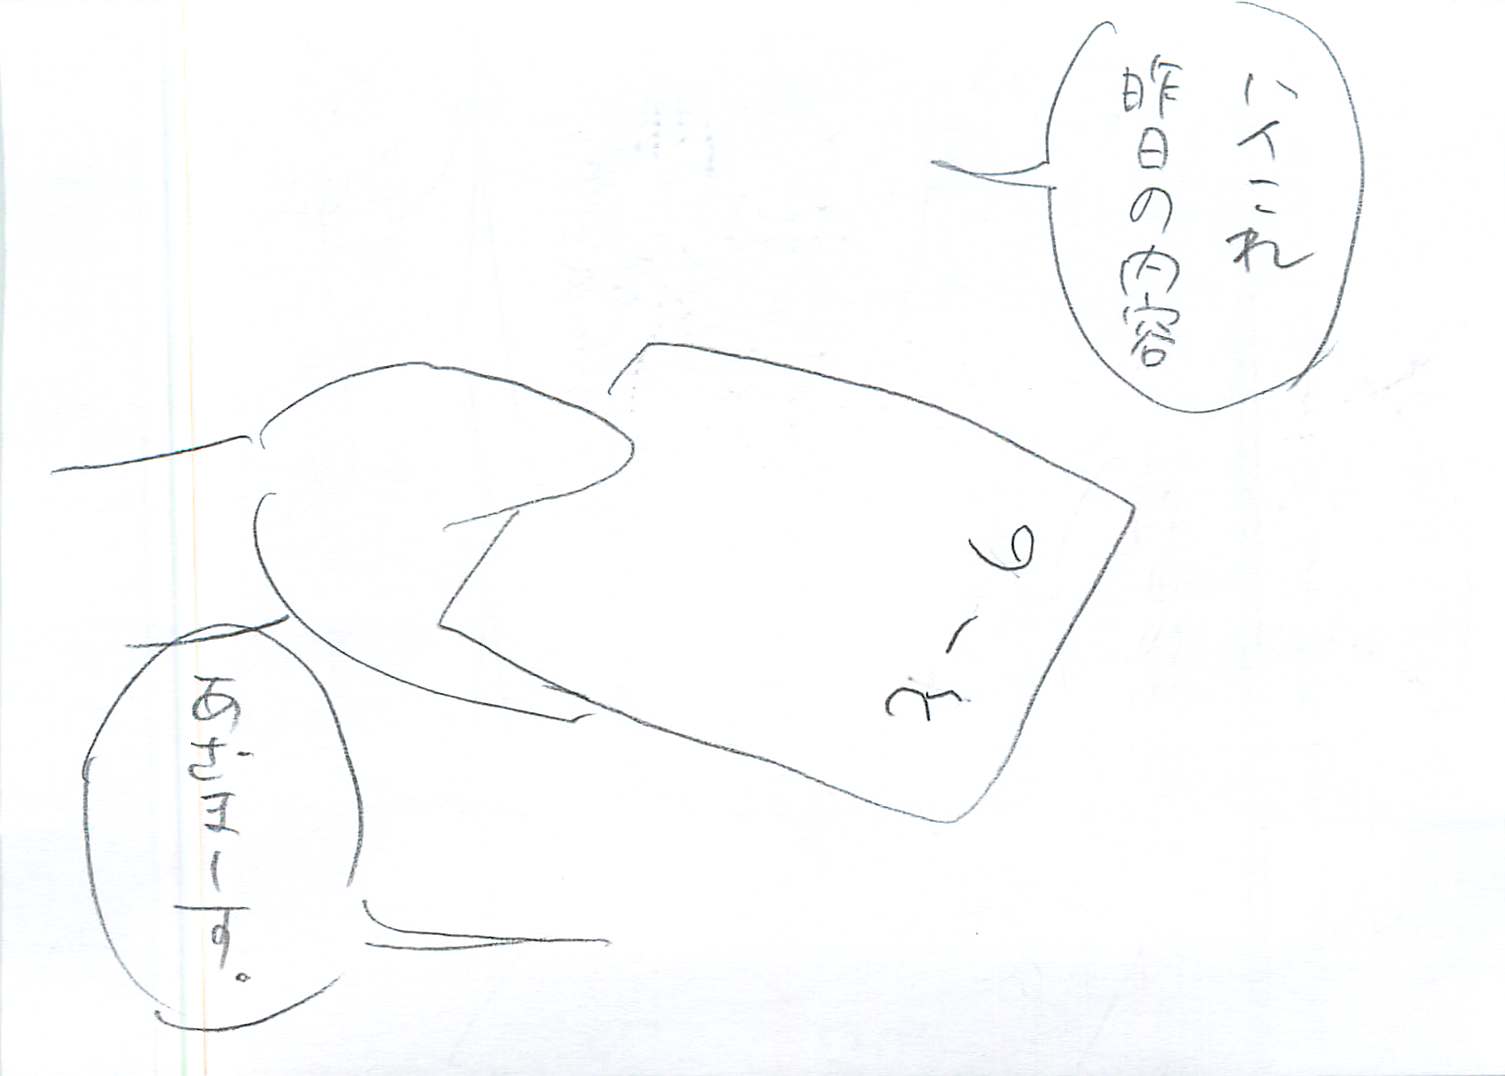 ハイこれ
昨日の内容
あざまーす。